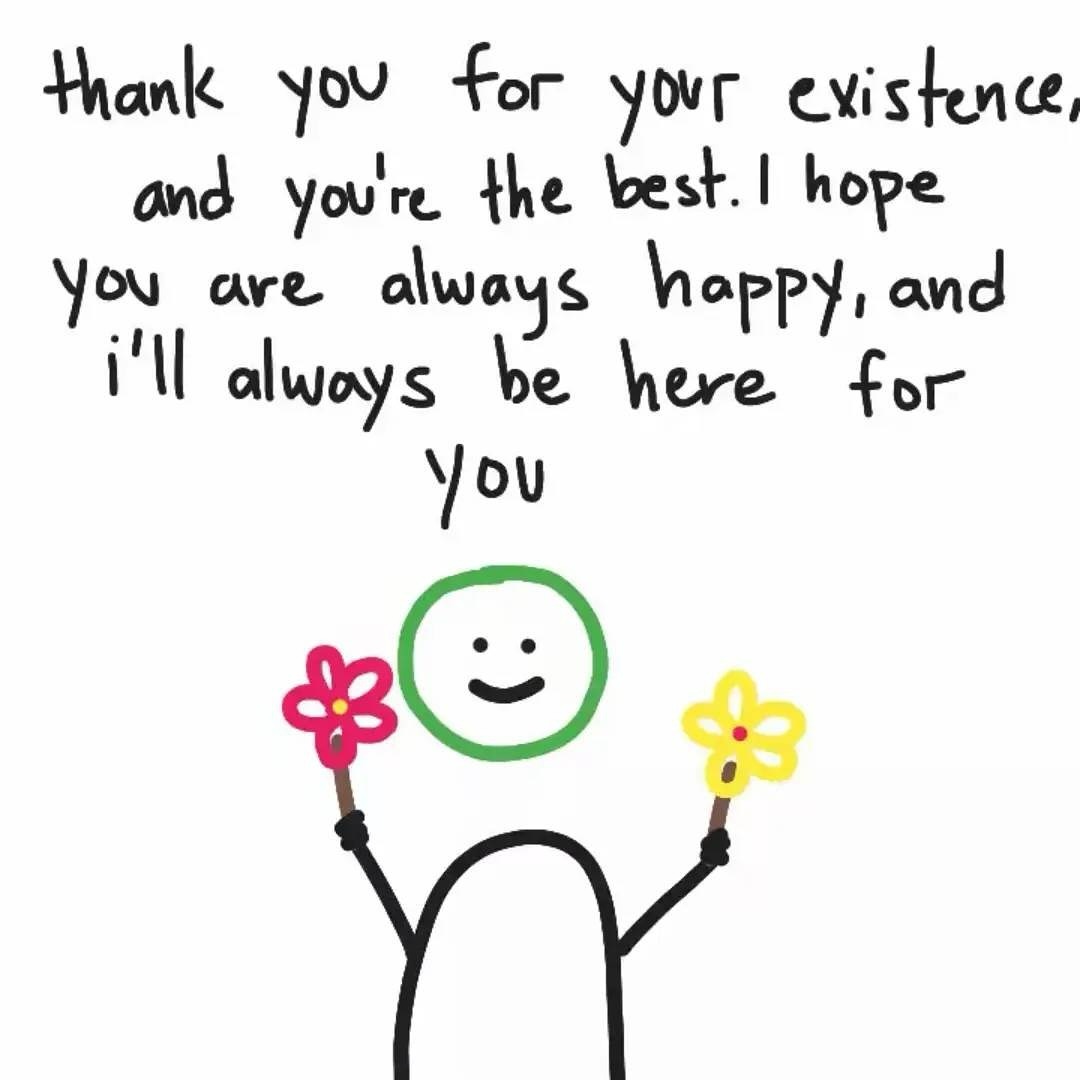 thank you for your existence,
and you're the best. I hope
you are always happy, and
i'll always be here for
you